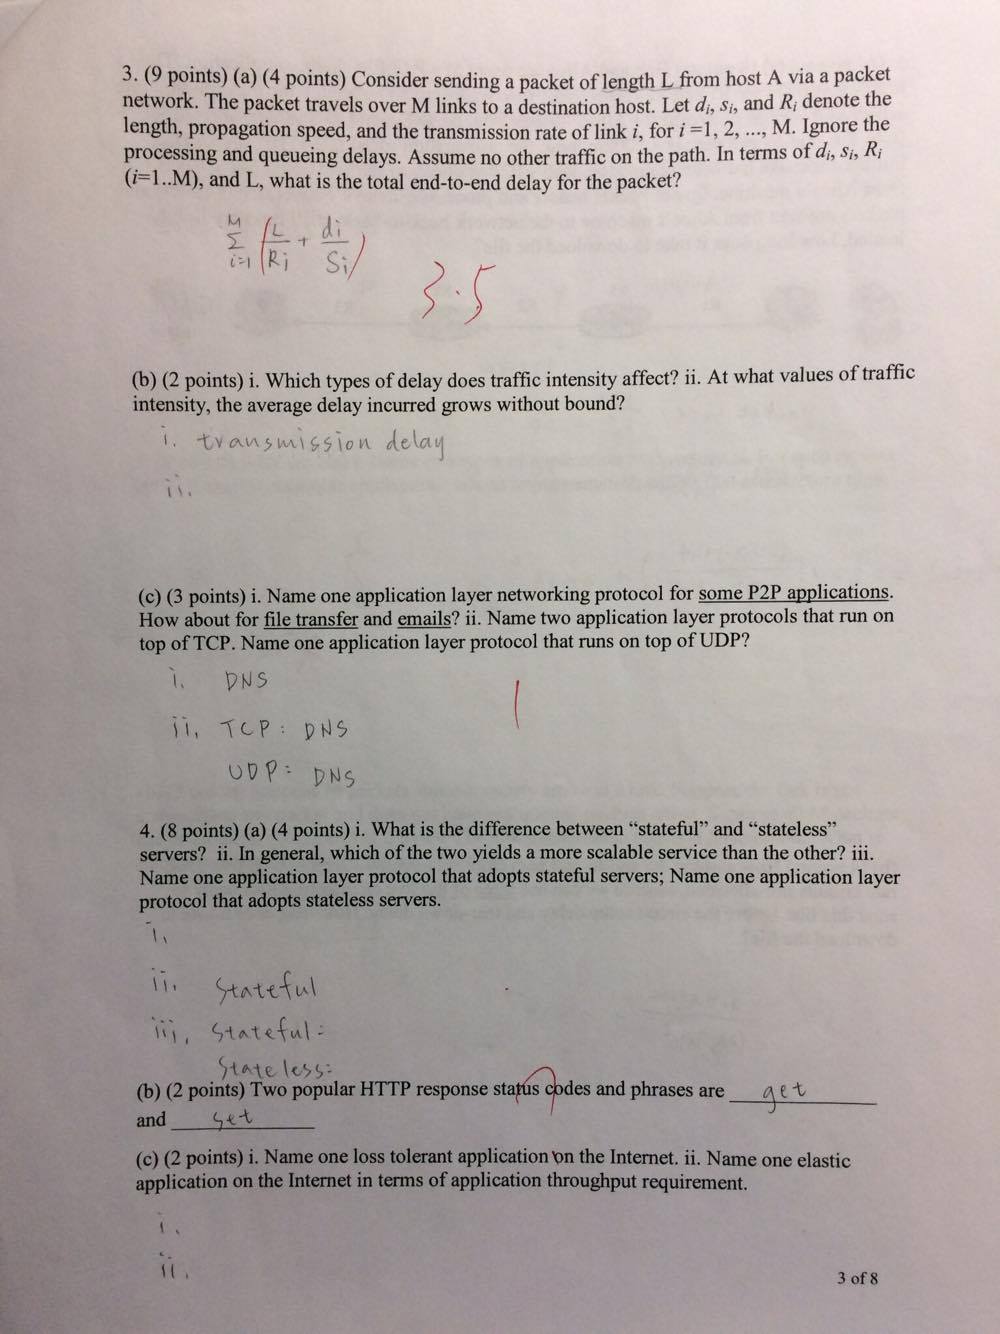 3. (9 points) (a) (4 points) Consider sending a packet of length L from host A via a packet
network. The packet travels over M links to a destination host. Let di, si, and Ri denote the
length, propagation speed, and the transmission rate of link i, for i =1, 2, ..., M. Ignore the
processing and queueing delays. Assume no other traffic on the path. In terms of di, si, Ri
(i=1..M), and L, what is the total end-to-end delay for the packet?
M
Σ ( L/Ri + di/Si )
i=1
3.5
(b) (2 points) i. Which types of delay does traffic intensity affect? ii. At what values of traffic
intensity, the average delay incurred grows without bound?
i. transmission delay
ii.
(c) (3 points) i. Name one application layer networking protocol for some P2P applications.
How about for file transfer and emails? ii. Name two application layer protocols that run on
top of TCP. Name one application layer protocol that runs on top of UDP?
i. DNS
1
ii. TCP: DNS
UDP: DNS
4. (8 points) (a) (4 points) i. What is the difference between “stateful” and “stateless”
servers? ii. In general, which of the two yields a more scalable service than the other? iii.
Name one application layer protocol that adopts stateful servers; Name one application layer
protocol that adopts stateless servers.
i.
ii. Stateful
iii. Stateful:
Stateless:
(b) (2 points) Two popular HTTP response status codes and phrases are get
and set
(c) (2 points) i. Name one loss tolerant application on the Internet. ii. Name one elastic
application on the Internet in terms of application throughput requirement.
i.
ii.
3 of 8